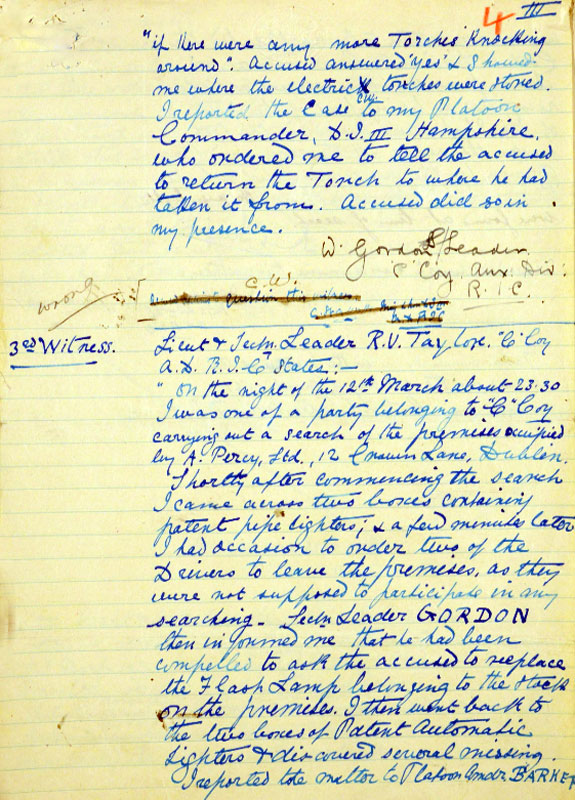 4 III
"if there were any more Torches Knocking
around". Accused answered 'Yes' & showed
me where the electric torches were stored.
I reported the Case to my Platoon
Commander, D.I. III Hampshire,
who ordered me to tell the accused
to return the Torch to where he had
taken it from. Accused did so in
my presence.
W. Gordon S/Leader
Coy Aux Div:
R.I.C.
wrong
question this witness
3rd Witness. Lieut & Sectn. Leader R.V. Taylor. "C" Coy
A.D. R.I.C. States:—
"On the night of the 12th March about 23.30
I was one of a party belonging to "C" Coy
carrying out a search of the premises occupied
by A. Percy, Ltd., 12 Lane, Dublin.
Shortly after commencing the search
I came across two boxes containing
patent pipe lighters, & a few minutes later
I had occasion to order two of the
Drivers to leave the premises, as they
were not supposed to participate in any
searching - Sectn Leader GORDON
then informed me that he had been
compelled to ask the accused to replace
the Flash Lamp belonging to the Stock
on the premises. I then went back to
the two boxes of Patent Automatic
Lighters & discovered several missing.
I reported the matter to Platoon Comdr BARKER